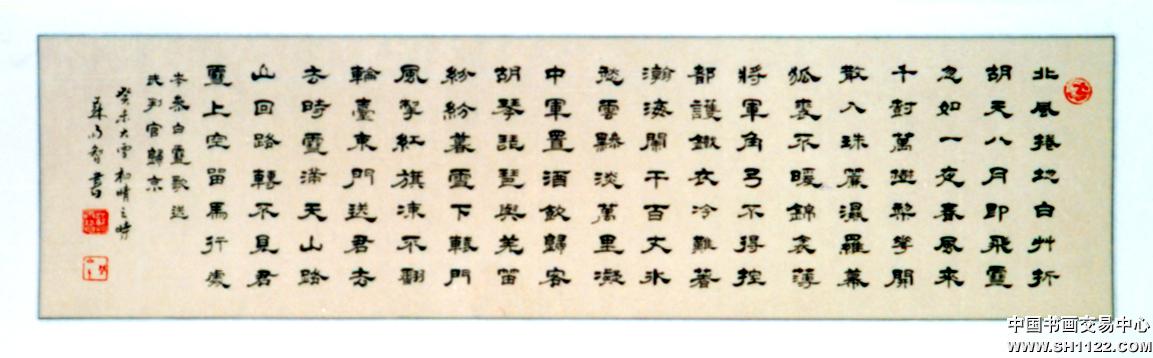 北風捲地白艸折
胡天八月即飛雪
忽如一夜春風來
千樹萬樹棃華開
散入珠簾濕羅幕
狐裘不暖錦衾薄
將軍角弓不得控
都護鐵衣冷難著
瀚海闌干百丈冰
愁雲黲淡萬里凝
中軍置酒飲歸客
胡琴琵琶與羌笛
紛紛暮雪下轅門
風掣紅旗凍不翻
輪臺東門送君去
去時雪滿天山路
山回路轉不見君
雪上空留馬行處
岑參白雪歌送
武判官歸京
癸未大雪初晴之時
書
中国书画交易中心
www.SH1122.com